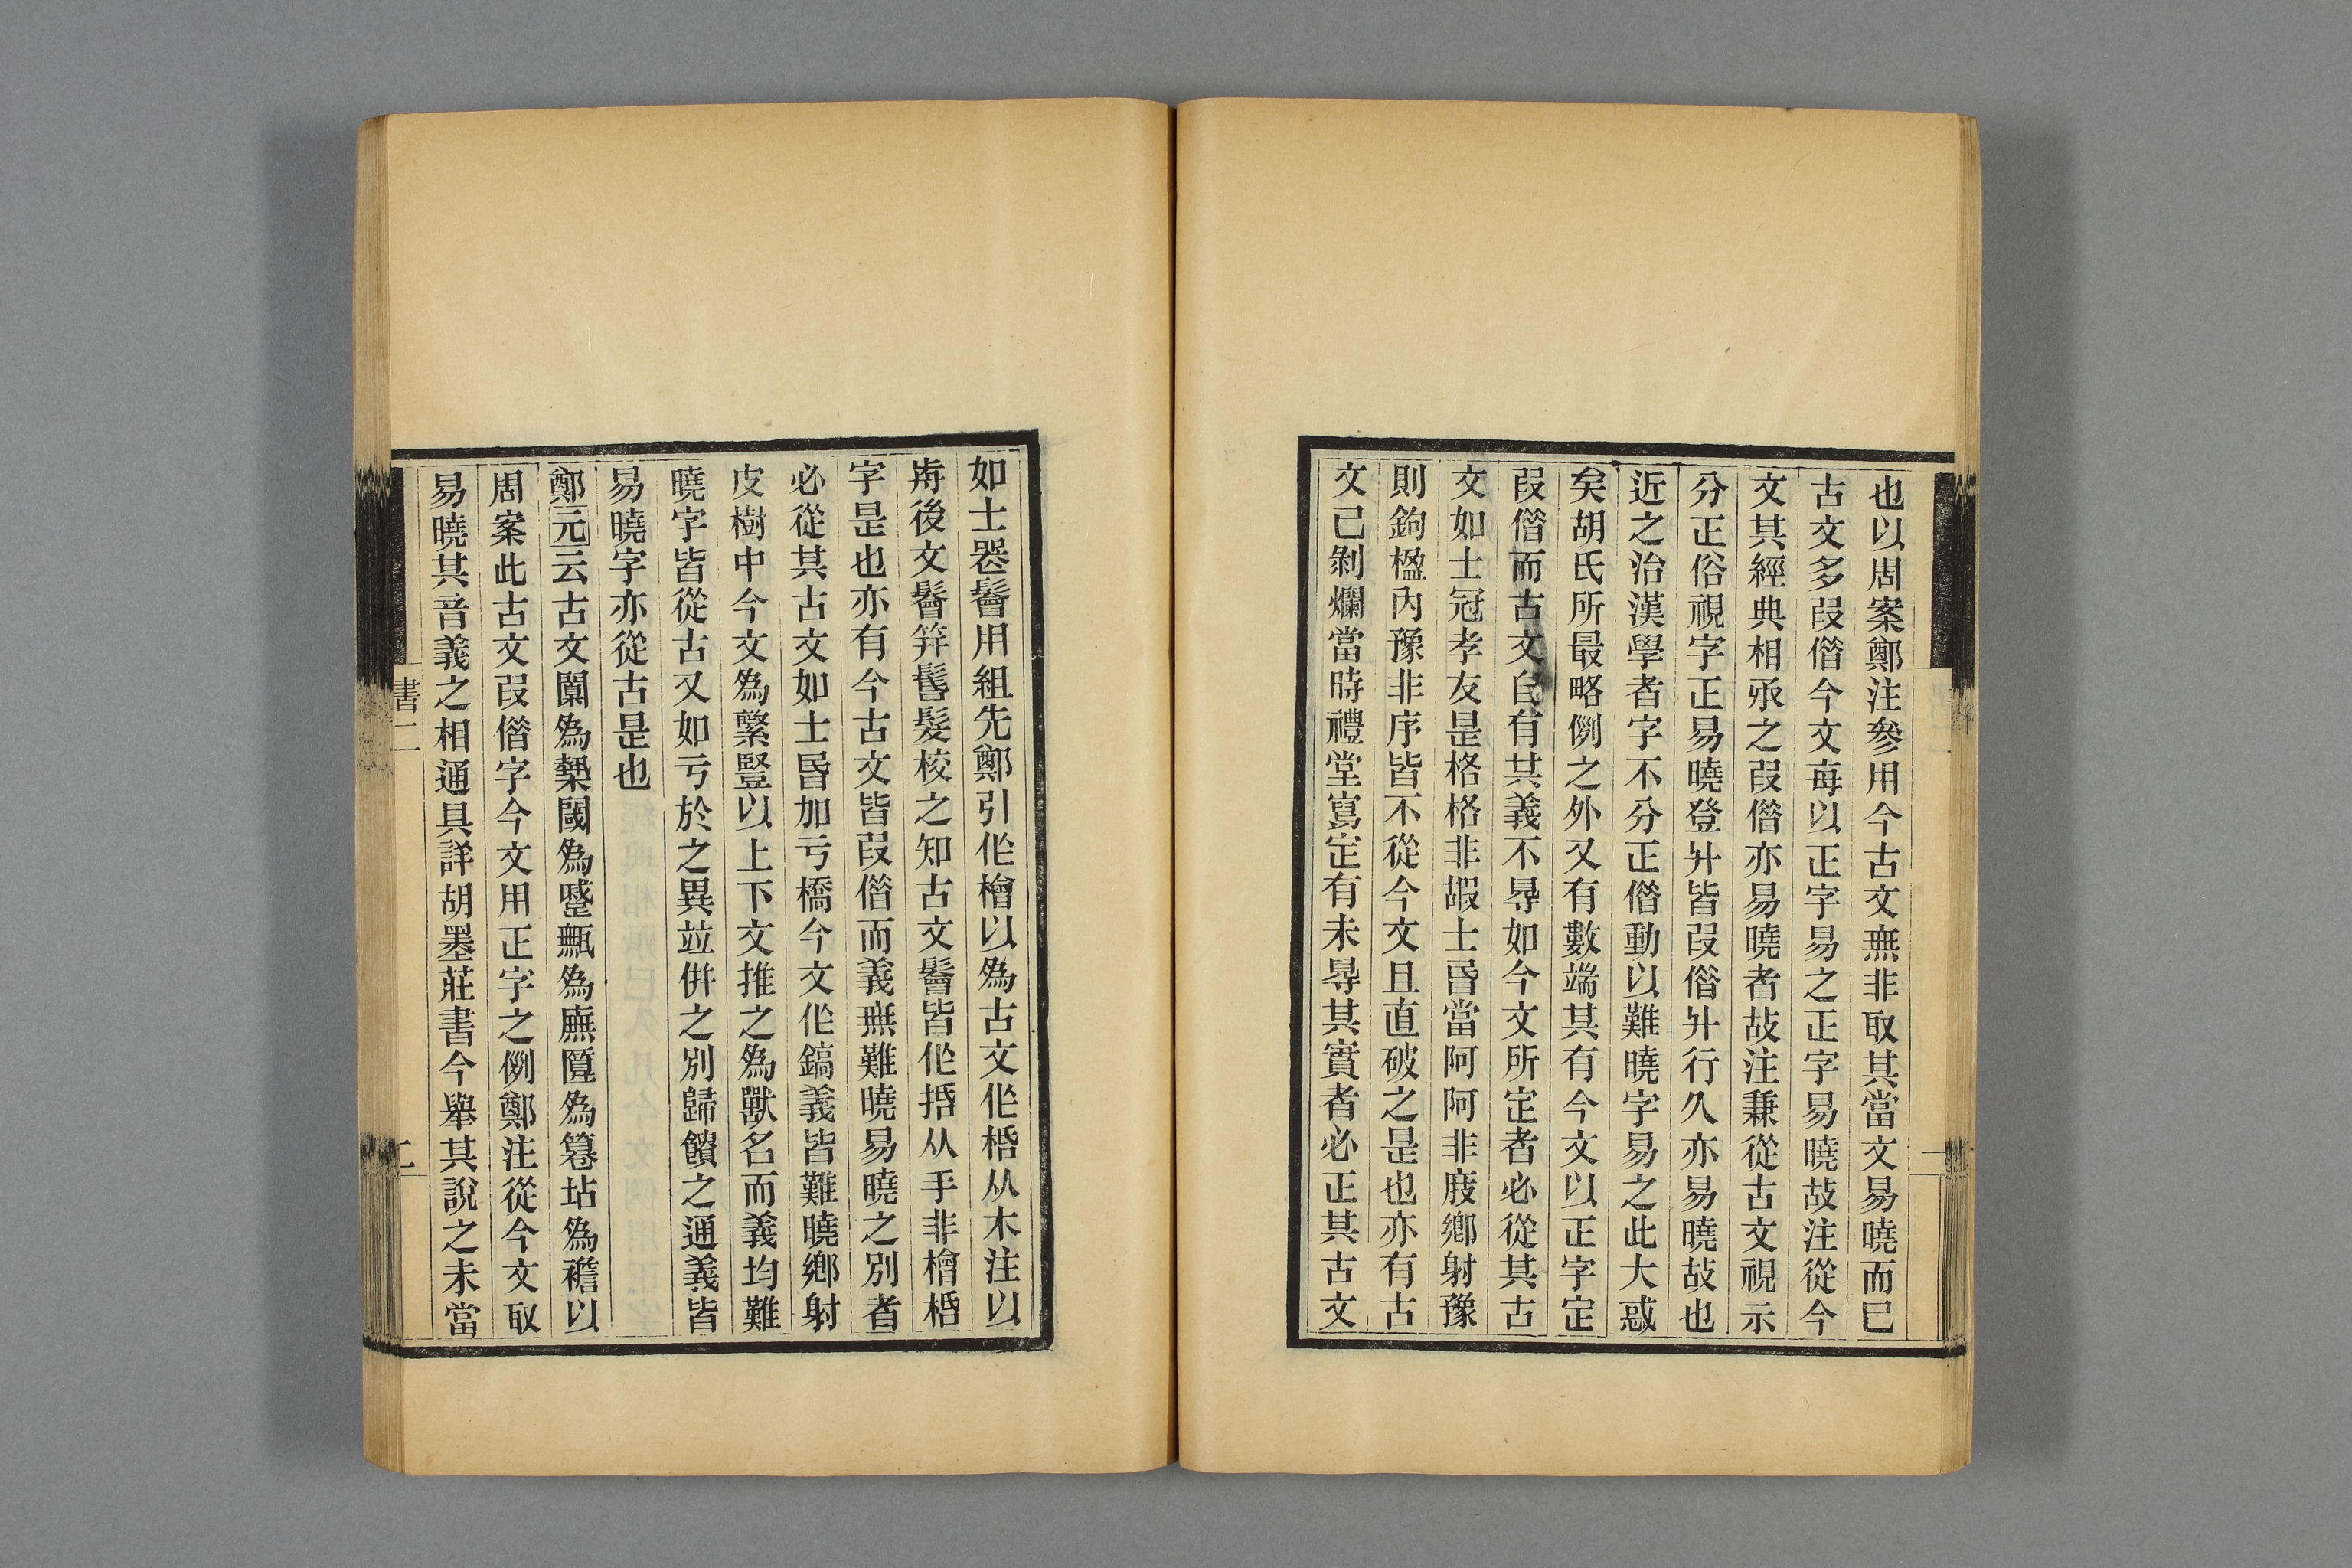 也以周案鄭注參用今古文無非取其當文易曉而已
古文多叚借今文每以正字易之正字易曉故注從今
文其經典相承之叚借亦易曉者故注兼從古文視示
分正俗視字正易曉登升皆叚借升行久亦易曉故也
近之治漢學者字不分正借動以難曉字易之此大惑
矣胡氏所最略例之外又有數端其有今文以正字定
叚借而古文自有其義不㝵如今文所定者必從其古
文如士冠孝友是格格非嘏士昬當阿阿非庪鄉射豫
則鉤楹內豫非序皆不從今文且直破之是也亦有古
文已剝爛當時禮堂寫定有未㝵其實者必正其古文
如士喪鬠用組先鄭引作檜以爲古文作㮯从木注以
歬後文鬠笄鬊髮校之知古文鬠皆作捪从手非檜㮯
字是也亦有今古文皆叚借而義無難曉易曉之別者
必從其古文如士昬加亏橋今文作鎬義皆難曉鄉射
皮樹中今文爲繁豎以上下文推之爲獸名而義均難
曉字皆從古又如亏於之異竝併之別歸饋之通義皆
易曉字亦從古是也
鄭元云古文闑爲槷閾爲蹙甒爲廡匴爲篹坫爲襜以
周案此古文叚借字今文用正字之例鄭注從今文取
易曉其音義之相通具詳胡墨莊書今舉其說之未當
書二
二